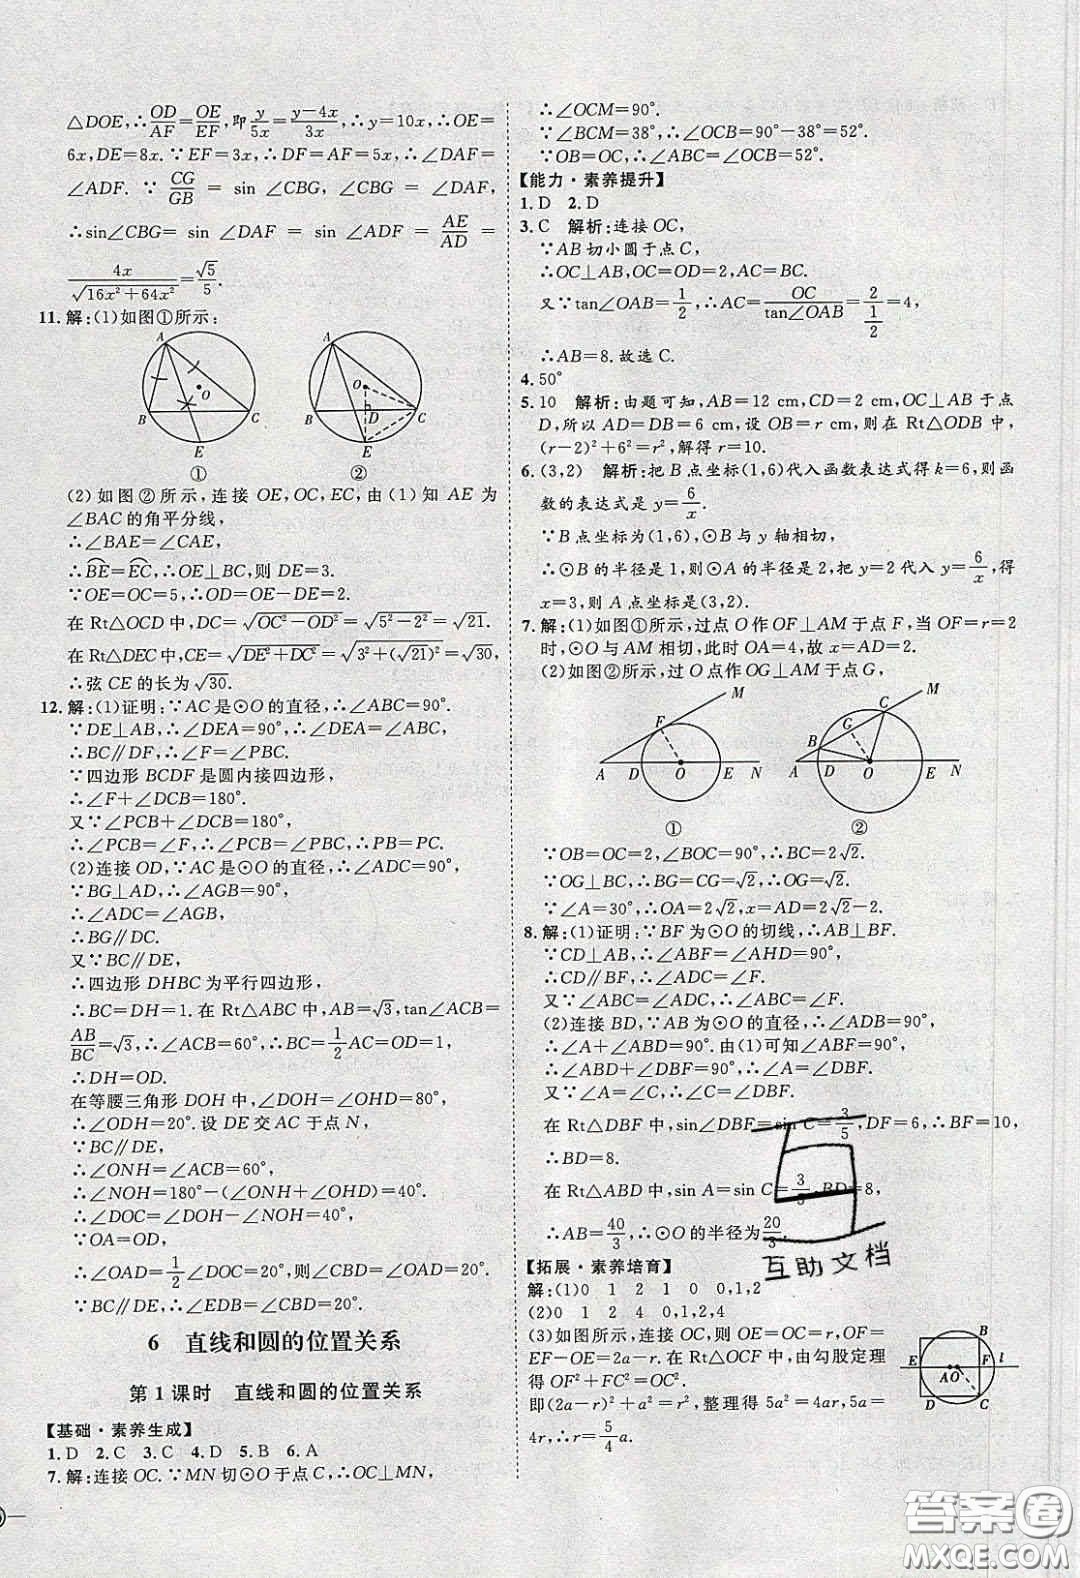 △DOE,∴OD/AF=OE/EF,即y/5x=y-4x/3x,∴y=10x,∴OE=
6x,DE=8x.∵EF=3x,∴DF=AF=5x,∴∠DAF=
∠ADF. ∵ CG/GB = sin ∠CBG, ∠CBG = ∠DAF,
∴sin∠CBG = sin ∠DAF = sin ∠ADF = AE/AD =
4x/√(16x²+64x²)=√5/5.
11.解:(1)如图①所示:
A
O
B
C
E
①
A
O
B
D
C
E
②
(2)如图②所示,连接 OE,OC,EC,由(1)知 AE 为
∠BAC的角平分线,
∴∠BAE=∠CAE,
∴BE=EC,∴OE⊥BC,则 DE=3.
∵OE=OC=5,∴OD=OE-DE=2.
在 Rt△OCD 中,DC=√(OC²-OD²)=√(5²-2²)=√21.
在 Rt△DEC 中,CE=√(DE²+DC²)=√(3²+(√21)²)=√30,
∴弦 CE 的长为√30.
12.解:(1)证明:∵AC是⊙O的直径,∴∠ABC=90°.
∵DE⊥AB,∴∠DEA=90°,∴∠DEA=∠ABC,
∴BC∥DF,∴∠F=∠PBC.
∵四边形 BCDF 是圆内接四边形,
∴∠F+∠DCB=180°.
又∵∠PCB+∠DCB=180°,
∴∠PCB=∠F,∴∠PCB=∠PBC,∴PB=PC.
(2)连接 OD,∵AC是⊙O的直径,∴∠ADC=90°.
∵BG⊥AD,∴∠AGB=90°,
∴∠ADC=∠AGB,
∴BG∥DC.
又∵BC∥DE,
∴四边形 DHBC 为平行四边形,
∴BC=DH=1.在 Rt△ABC 中,AB=√3,tan∠ACB=
AB/BC=√3,∴∠ACB=60°,∴BC=1/2AC=OD=1,
∴DH=OD.
在等腰三角形 DOH 中,∠DOH=∠OHD=80°,
∴∠ODH=20°.设 DE 交 AC 于点 N,
∵BC∥DE,
∴∠ONH=∠ACB=60°,
∴∠NOH=180°-(∠ONH+∠OHD)=40°,
∴∠DOC=∠DOH-∠NOH=40°.
∵OA=OD,
∴∠OAD=1/2∠DOC=20°,则∠CBD=∠OAD=20°.
∵BC∥DE,∴∠EDB=∠CBD=20°.
6 直线和圆的位置关系
第 1 课时 直线和圆的位置关系
【基础·素养生成】
1.D 2.C 3.C 4.D 5.B 6.A
7.解:连接 OC.∵MN切⊙O于点C,∴OC⊥MN,
∴∠OCM=90°.
∵∠BCM=38°,∴∠OCB=90°-38°=52°.
∵OB=OC,∴∠ABC=∠OCB=52°.
【能力·素养提升】
1.D 2.D
3.C 解析:连接 OC,
∵AB 切小圆于点 C,
∴OC⊥AB,OC=OD=2,AC=BC.
又∵tan∠OAB=1/2,∴AC=OC/tan∠OAB=2/(1/2)=4,
∴AB=8.故选 C.
4.50°
5.10 解析:由题可知,AB=12 cm,CD=2 cm,OC⊥AB 于点
D,所以 AD=DB=6 cm,设 OB=r cm,则在 Rt△ODB 中,
(r-2)²+6²=r²,解得 r=10.
6.(3,2) 解析:把 B 点坐标(1,6)代入函数表达式得 k=6,则函
数的表达式是 y=6/x.
∵B 点坐标为(1,6),⊙B 与 y 轴相切,
∴⊙B 的半径是 1,则⊙A 的半径是 2,把 y=2 代入 y=6/x,得
x=3,则 A 点坐标为(3,2).
7.解:(1)如图①所示,过点 O 作 OF⊥AM 于点 F,当 OF=r=2
时,⊙O 与 AM 相切,此时 OA=4,故 x=AD=2.
(2)如图②所示,过 O 点作 OG⊥AM 于点 G,
M
F
A
D
O
E
N
①
M
C
G
B
A
D
O
E
N
②
∵OB=OC=2,∠BOC=90°,∴BC=2√2.
∵OG⊥BC,∴BG=CG=√2,∴OG=√2.
∵∠A=30°,∴OA=2√2,x=AD=2√2-2.
8.解:(1)证明:∵BF 为⊙O 的切线,∴AB⊥BF.
∵CD⊥AB,∴∠ABF=∠AHD=90°,
∴CD∥BF,∴∠ADC=∠F.
又∵∠ABC=∠ADC,∴∠ABC=∠F.
(2)连接 BD,∵AB 为⊙O 的直径,∴∠ADB=90°,
∴∠A+∠ABD=90°.由(1)可知∠ABF=90°,
∴∠ABD+∠DBF=90°,∴∠A=∠DBF.
又∵∠A=∠C,∴∠C=∠DBF.
在 Rt△DBF 中,sin∠DBF=sin C=3/5,DF=6,∴BF=10,
∴BD=8.
在 Rt△ABD 中,sin A=sin C=3/5,BD=8,
∴AB=40/3,∴⊙O的半径为20/3.
互助文档
【拓展·素养培育】
解:(1)0 1 2 1 0 0,1,2
(2)0 1 2 4 0,1,2,4
(3)如图所示,连接 OC,则 OE=OC=r,OF=
EF-OE=2a-r.在 Rt△OCF 中,由勾股定理
得 OF²+FC²=OC²,
即(2a-r)²+a²=r²,4a²-4ar+r²+a²=r²,5a²=4ar,5a=
4r,∴r=5/4a.
B
E
F
l
AO
D
C
答案圈
MXQE.COM